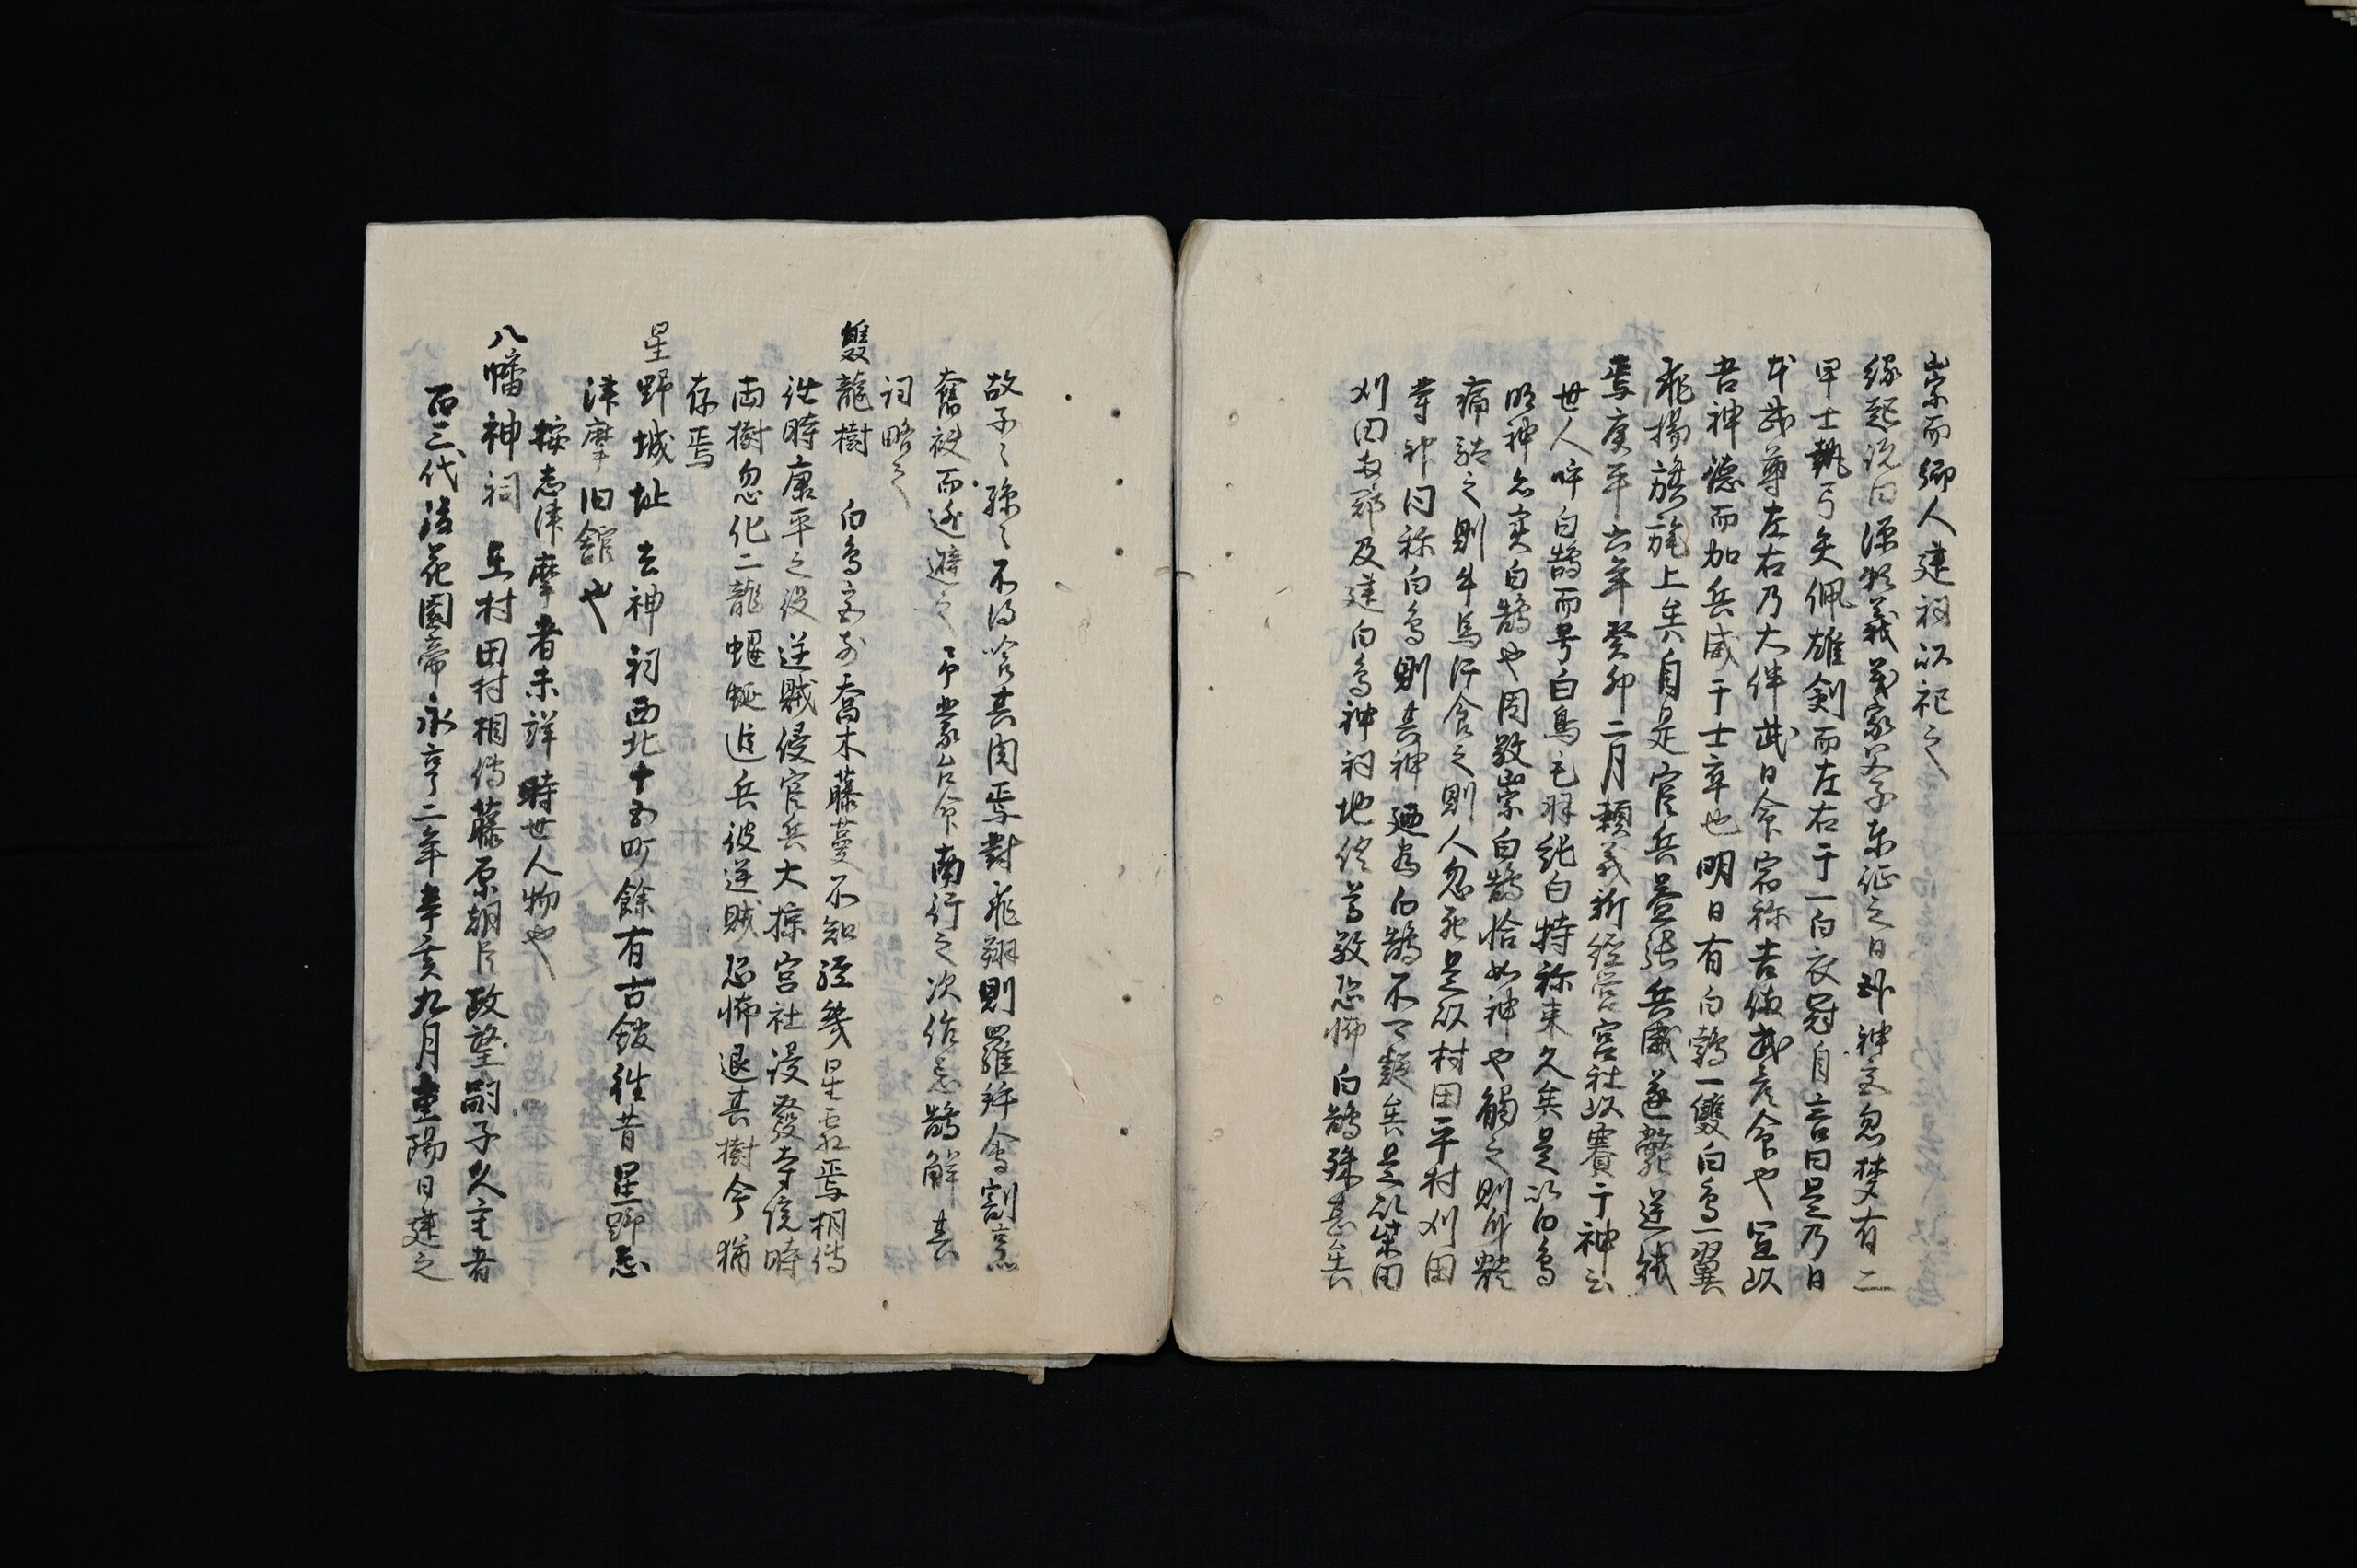 崇而郷人建祠以祀之
縁起説曰源頼義義家父子東征之日詣神宮忽梦有二
甲士執弓矢佩雄剣而左右于一白衣冠自言曰是乃日
本武尊左右乃大伴武日命宿祢吉備武彦命也宜以
吾神徳而加兵威于士卒也明日有白鶴一雙白鳥一翼
飛揚旗旄上矣自是官兵益張兵威遂斃逆賊
焉康平六年癸卯二月頼義新経営宮社以賽于神云
世人呼白鵠而号白鳥毛羽純白特称来久矣是以白鳥
明神名実白鵠也因敬崇白鵠恰如神也觸之則身體
痛騎之則牛馬汗食之則人忽死是以村田平村刈田
等神同称白鳥則其神廼為白鵠不可疑矣是以柴田
刈田両郡及建白鳥神祠地俗尊敬恐怖白鵠殊甚矣
故子々孫々不得喰其肉焉對飛翔則羅拜禽割烹
奮袂而逃避之予蒙台命南行之次作忌鵠解其
詞略之
雙龍樹 白鳥宮前喬木藤蔓不知経幾星霜焉相傳
往時康平之役逆賊侵官兵大掠宮社侵發寺院時
両樹忽化二龍蜿蜒追兵彼逆賊恐怖退其樹今猶
存焉
星野城址 去神祠西北十五町餘有古館往昔星野志
津摩旧舘也
按志津摩者未詳時世人物也
八幡神祠 在村田村相傳藤原朝臣政望嗣子久主者
百三代後花園帝永享二年辛亥九月重陽日建之